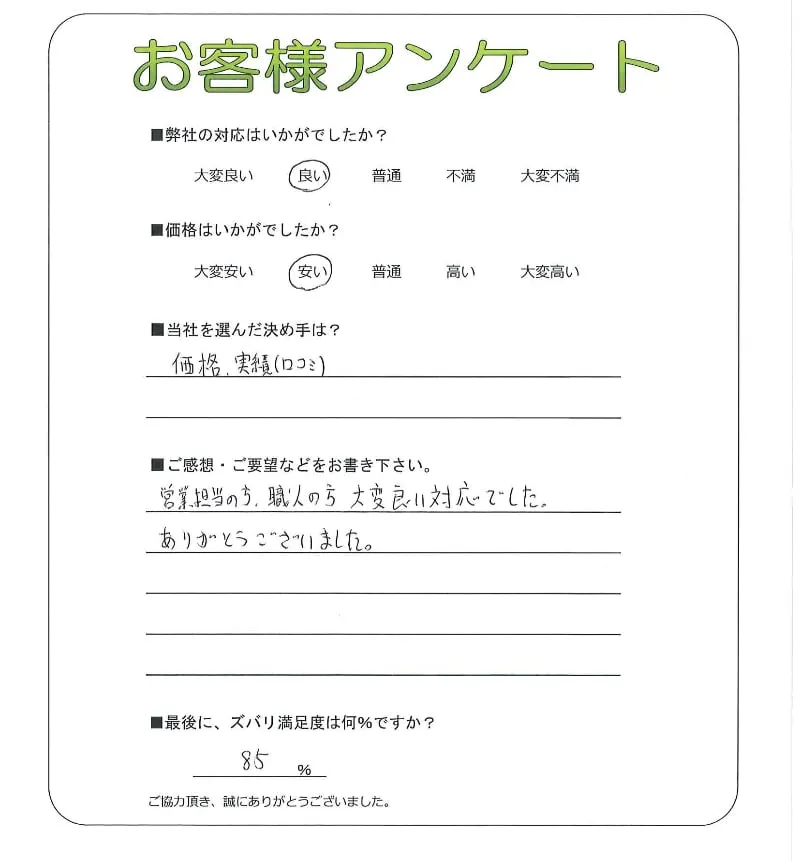 お客様アンケート
■弊社の対応はいかがでしたか？
大変良い 良い 普通 不満 大変不満
■価格はいかがでしたか？
大変安い 安い 普通 高い 大変高い
■当社を選んだ決め手は？
価格、実績(口コミ)
■ご感想・ご要望などをお書き下さい。
営業担当の方、職人の方 大変良い対応でした。
ありがとうございました。
■最後に、ズバリ満足度は何%ですか？
85 %
ご協力頂き、誠にありがとうございました。